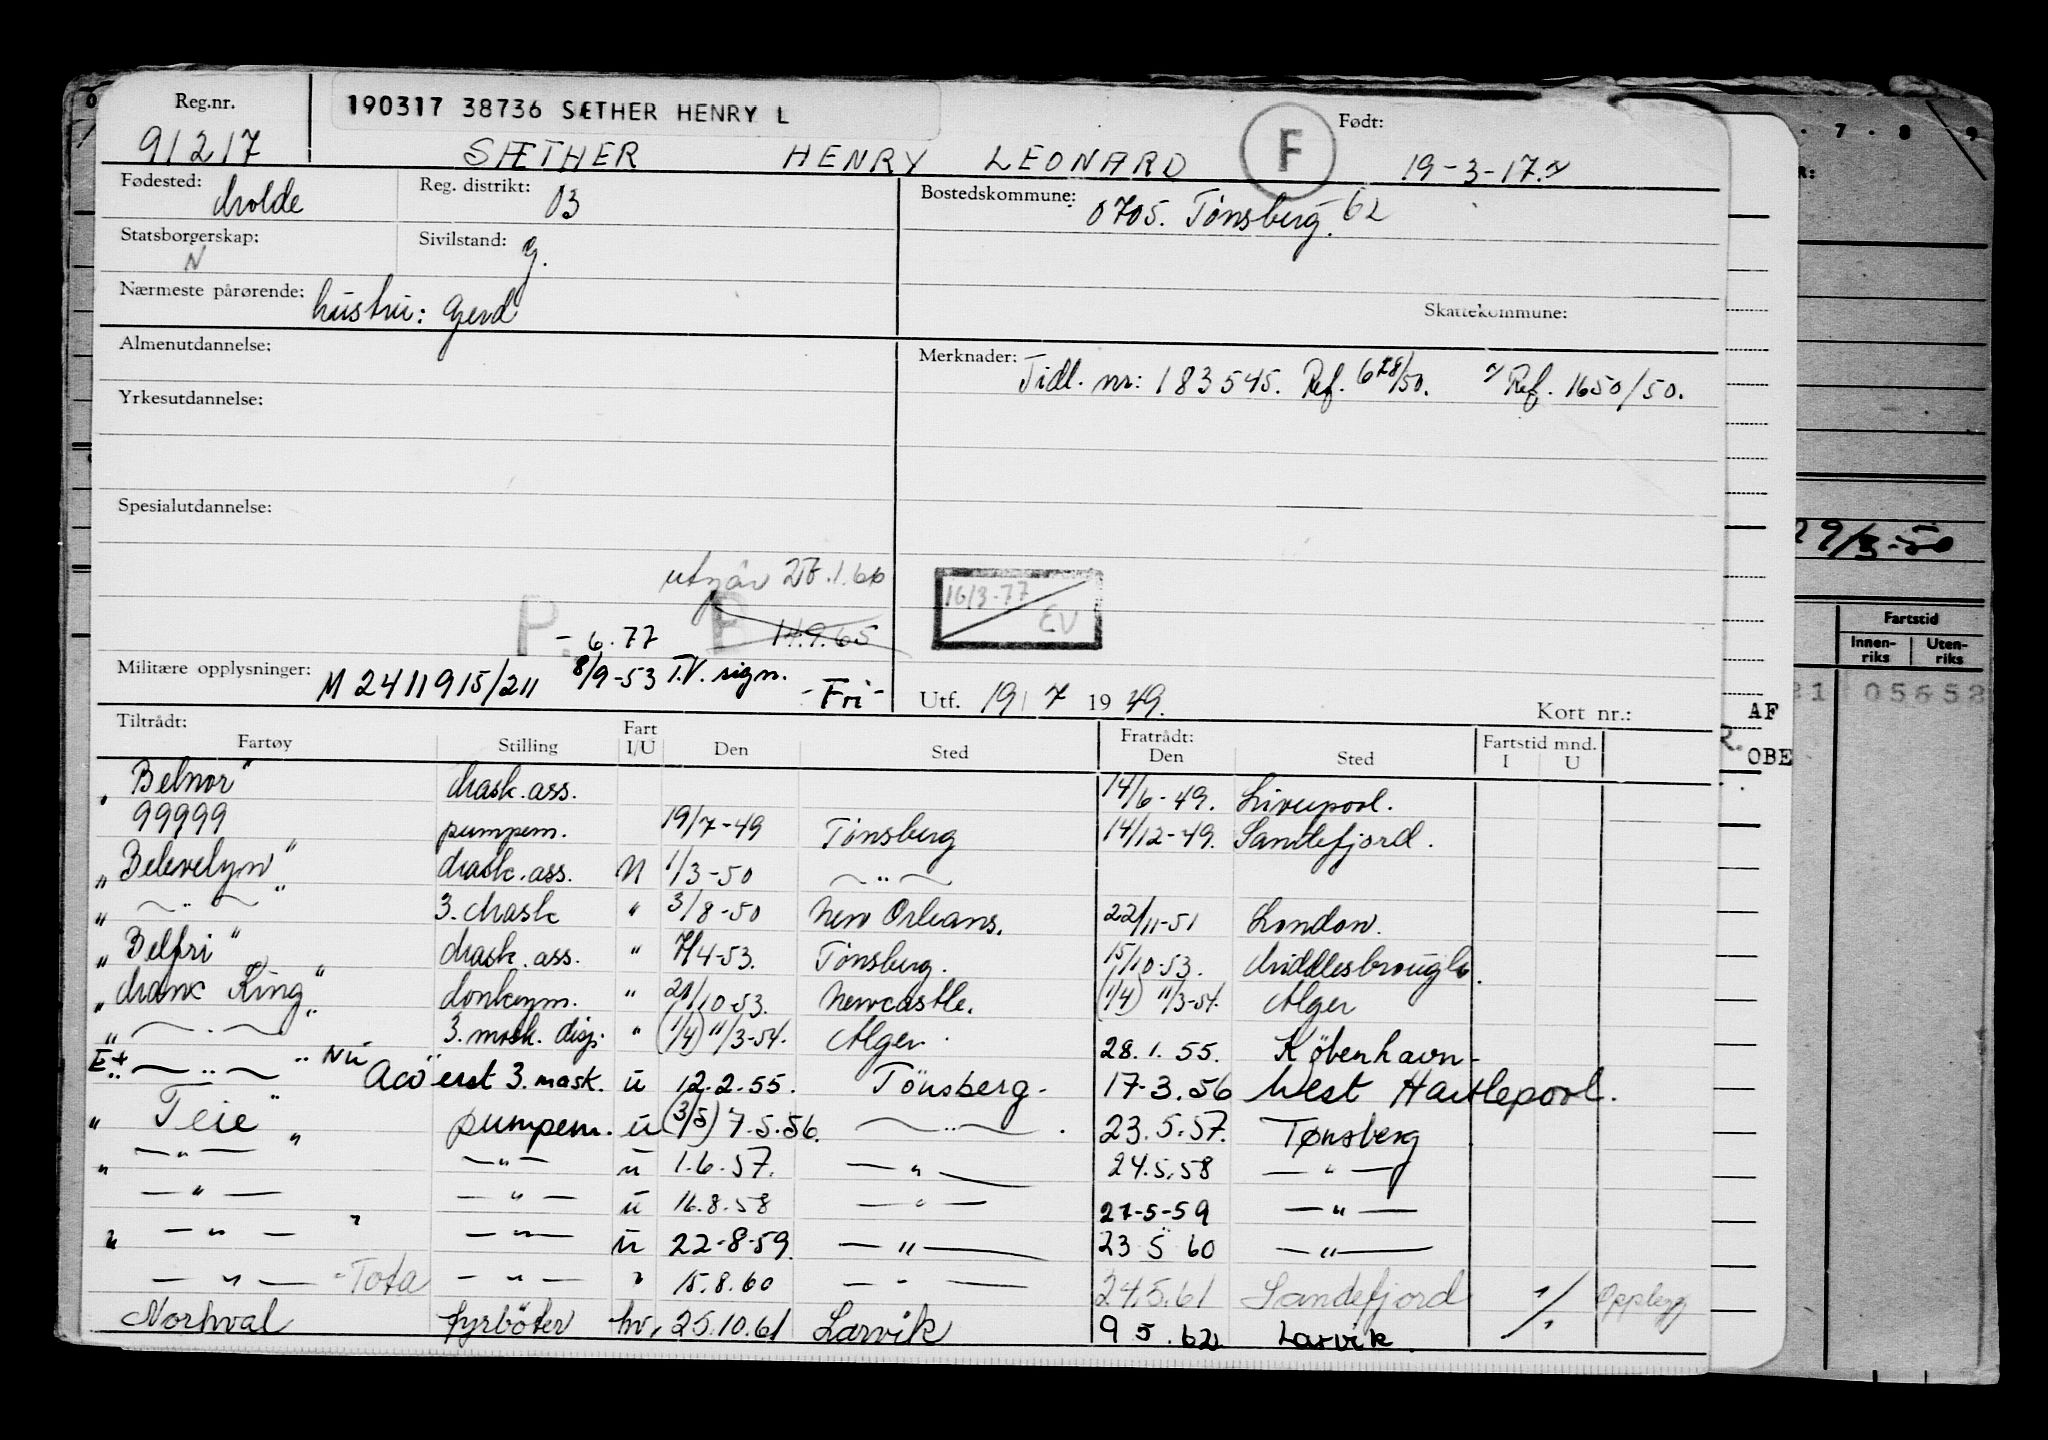 Reg.nr.
190317 38736 SÆTHER HENRY L
F
Født:
91217
SÆTHER HENRY LEONARD
19-3-17.
Fødested: Molde
Reg. distrikt: 03
Bostedskommune: 0705. Tönsberg. 62
Statsborgerskap: N
Sivilstand: g.
Nærmeste pårørende: hustru: Gerd
Skattekommune:
Almenutdannelse:
Merknader: Tidl. nr: 183545. Ref. 628/50. Ref. 1650/50.
Yrkesutdannelse:
Spesialutdannelse:
utgår 1.66
P. - 6.77
P 14.9.65
16/3-77
EV
Militære opplysninger: M 2411915/211 8/9-53 T.V. sign. - Fri -
Utf. 19/7 1949.
Kort nr.:
Tiltrådt:
Fartøy Stilling Fart I/U Den Sted Fratrådt: Den Sted Fartstid mnd. I U
„Belnor" Mask. ass. 14/6-49. Liverpool.
99999 pumpem. 19/7-49 Tönsberg 14/12-49. Sandefjord.
„Belevelyn" Mask. ass. N 1/3-50 — „ —
„ — „ — " 3. Mask " 3/8-50 New Orleans. 22/11-51 London.
„Belfri" Mask. ass. " 7/4-53. Tönsberg. 15/10-53. Middlesbrough.
„Manx King" donkeym. " /10-53. Newcastle. (1/4) 11/3-54. Alger
„ — „ — " 3. mask. disp. " (1/4) 11/3-54. Alger. 28.1.55. København-
— „ — " Nu erst 3. mask. ü 12.2.55. Tönsberg. 17-3.56 West Hartlepool.
" Teie " pumpem. ü (3/5) 7.5.56. — „ — . 23.5.57. Tønsberg
" — „ — " — „ — ü 1.6.57. — „ — 24.5.58 — „ —
— „ — — „ — ü 16.8.58 — „ — 27-5-59 — „ —
" — „ — " — „ — ü 22-8-59. — „ — 23 5 60 — „ —
— „ — -Tota — „ — " 15.8.60 — „ — 24.5.61 Sandefjord Opplegg
Norhval fyrböter hv, 25.10.61 Larvik 9 5. 62 Larvik.
7 . 8 9
29/3-50
Fartstid
Innen-riks Uten-riks
05652
AF
OBE